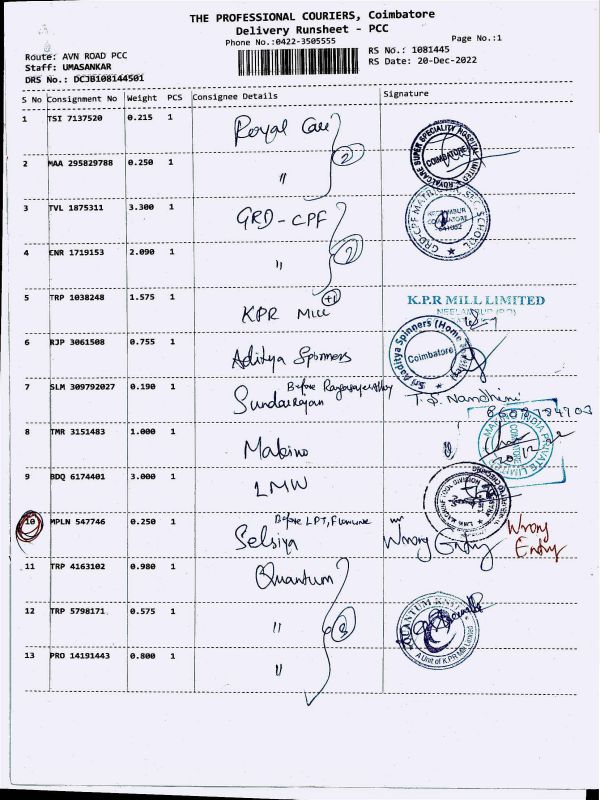 THE PROFESSIONAL COURIERS, Coimbatore
Delivery Runsheet - PCC
Phone No.:0422-3505555
Page No.:1
Route: AVN ROAD PCC
RS No.: 1081445
Staff: UMASANKAR
RS Date: 20-Dec-2022
DRS No.: DCJB108144501
S No Consignment No Weight PCS Consignee Details Signature
1 TSI 7137520 0.215 1 Royal Care
2 MAA 295829788 0.250 1 " 2
ROYALCARE SUPER SPECIALITY HOSPITAL LIMITED COIMBATORE
3 TVL 1875311 3.300 1 GRD-CPF
4 CNR 1719153 2.090 1 " 2
5 TRP 1038248 1.575 1 KPR Mill +1 K.P.R MILL LIMITED
6 RJP 3061508 0.755 1 Aditya Spinners
Sri Aaditya Spinners (Home Coimbatore
7 SLM 309792027 0.190 1 Before Sundarayan T.S. Nandhini
8 TMR 3151483 1.000 1 Makino 20/12
9 BDQ 6174401 3.000 1 LMW
10 MPLN 547746 0.250 1 Before LPT, Selsiya Wrong Entry Wrong Entry
11 TRP 4163102 0.980 1 Quantum
12 TRP 5798171 0.575 1 " 3
QUANTUM KNITS A Unit of K.P.R Mill Limited
13 PRO 14191443 0.800 1 "